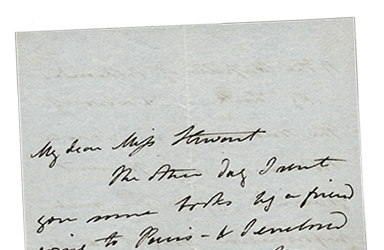 My dear Miss Stewart
The other day I sent
you some books by a friend
going to Paris - & I enclosed